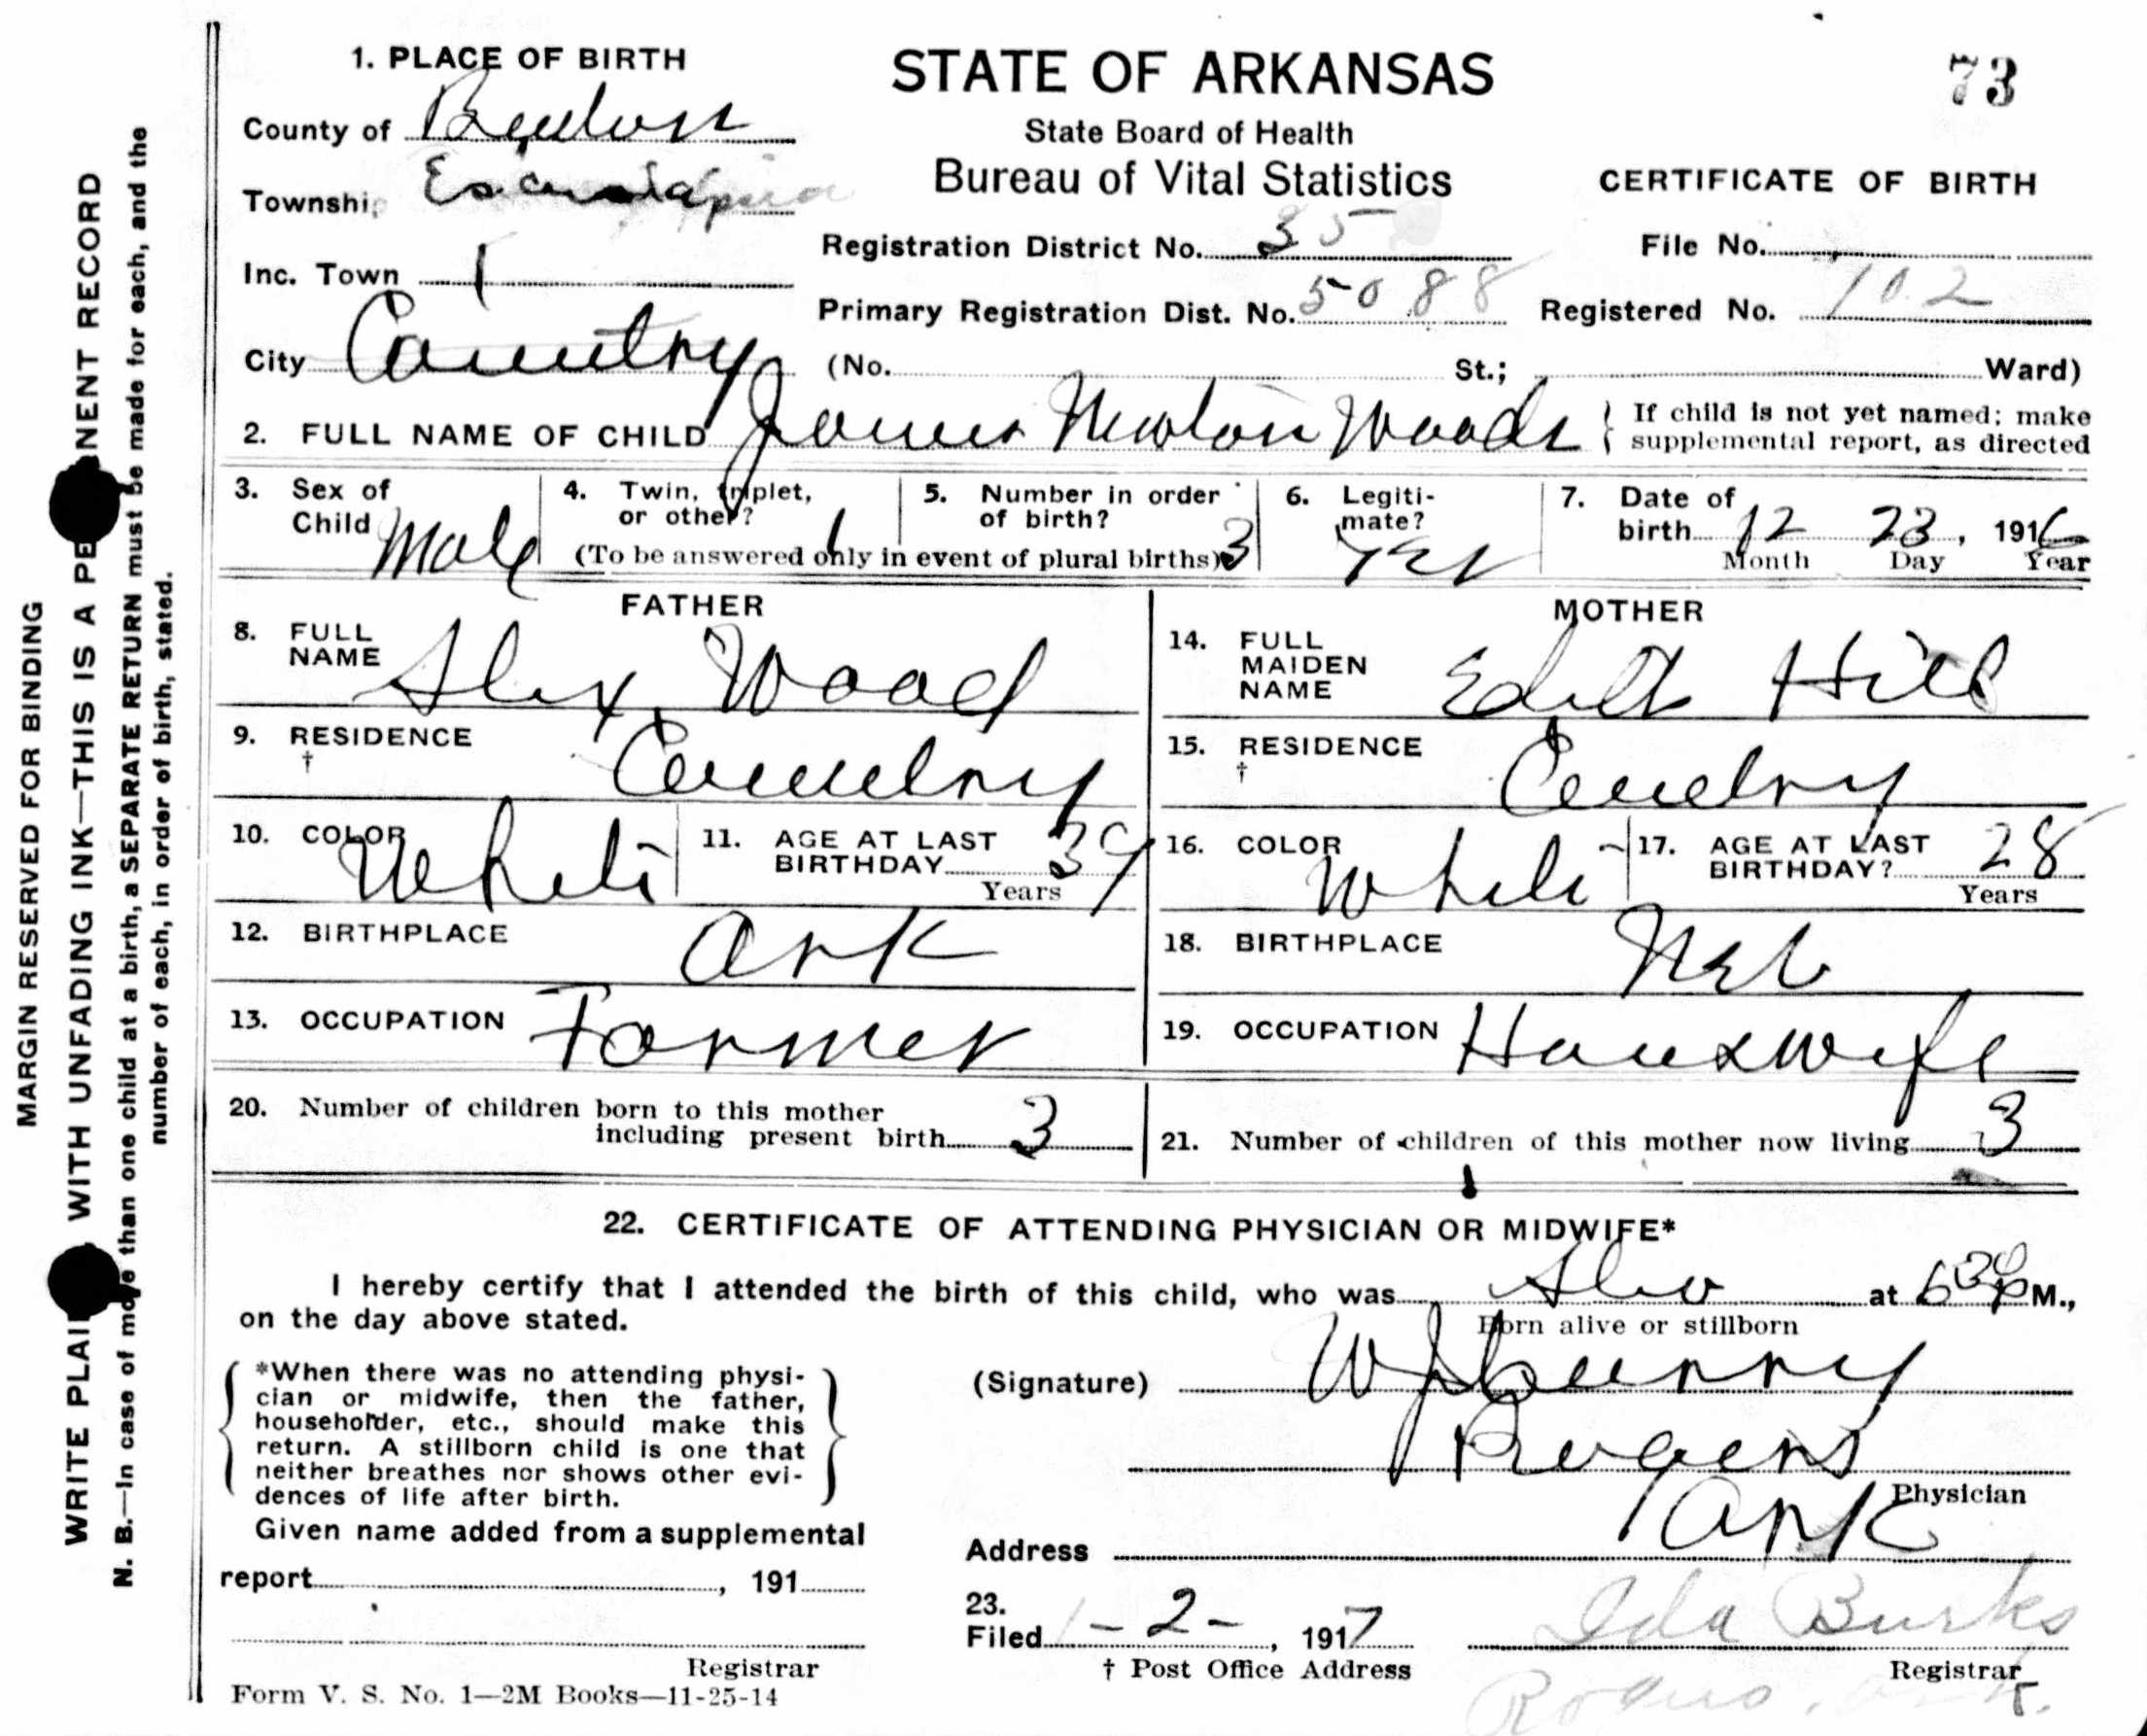 1. PLACE OF BIRTH
STATE OF ARKANSAS
73
County of Benton
State Board of Health
Township
Bureau of Vital Statistics
CERTIFICATE OF BIRTH
Inc. Town
Registration District No. 35
File No.
Primary Registration Dist. No. 5088
Registered No. 102
City Country
(No. St.; Ward)
2. FULL NAME OF CHILD James Newton Woods
If child is not yet named; make
supplemental report, as directed
3. Sex of
Child Male
4. Twin, triplet,
or other?
5. Number in order
of birth? 3
(To be answered only in event of plural births)
6. Legiti-
mate?
Yes
7. Date of
birth 12 23, 1916
Month Day Year
FATHER
8. FULL
NAME Alex Wood
9. RESIDENCE
† Country
10. COLOR White
11. AGE AT LAST
BIRTHDAY 39
Years
12. BIRTHPLACE Ark
13. OCCUPATION Farmer
MOTHER
14. FULL
MAIDEN
NAME Edith Hill
15. RESIDENCE
† Country
16. COLOR White
17. AGE AT LAST
BIRTHDAY? 28
Years
18. BIRTHPLACE Neb
19. OCCUPATION Housewife
20. Number of children born to this mother
including present birth 3
21. Number of children of this mother now living 3
22. CERTIFICATE OF ATTENDING PHYSICIAN OR MIDWIFE*
I hereby certify that I attended the birth of this child, who was at 630 P M.,
Born alive or stillborn
on the day above stated.
*When there was no attending physi-
cian or midwife, then the father,
householder, etc., should make this
return. A stillborn child is one that
neither breathes nor shows other evi-
dences of life after birth.
(Signature)
Rogers
Physician
Address Ark
Given name added from a supplemental
report, 191
Registrar
23.
Filed 1-2-, 1917
Ida Burks
† Post Office Address
Registrar
Rogers, Ark.
Form V. S. No. 1—2M Books—11-25-14
MARGIN RESERVED FOR BINDING
WRITE PLAI WITH UNFADING INK—THIS IS A PE NENT RECORD
N. B.—In case of more than one child at a birth, a SEPARATE RETURN must be made for each, and the
number of each, in order of birth, stated.